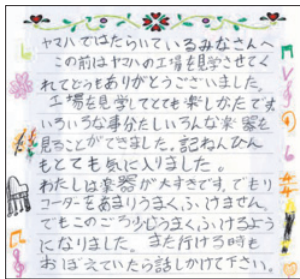 ヤマハではたらいているみなさんへ
この前はヤマハの工場を見学させてく
れてどうもありがとうございました。
工場を見学してとても楽しかたです
いろいろな事分たしいろんな楽器を
見ることができました。記ねんひん
もとても気に入りました。
わたしは楽器が大すきです。でもリ
コーダーをあまりうまくふけません。
でもこのごろ少しうまくふけるよう
になりました。また行ける時も
おぼえていたら話しかけて下さい。